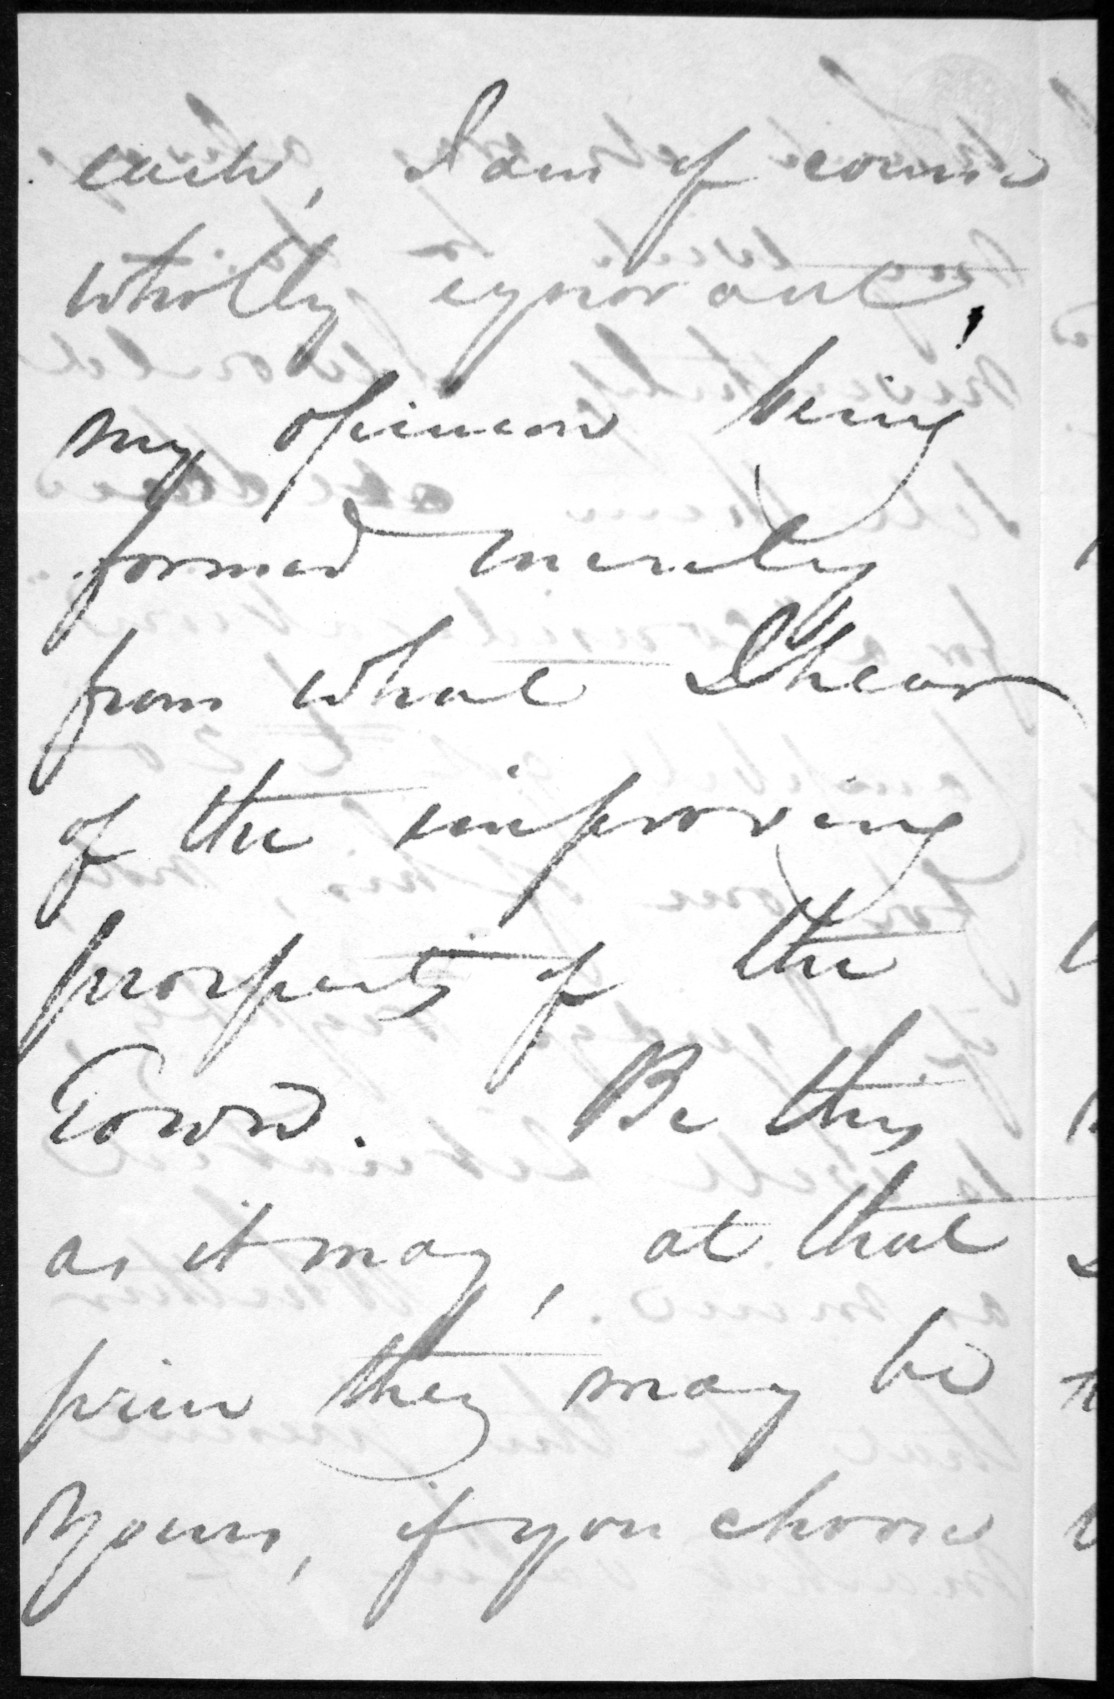 each, I am of course
wholly ignorant,
my opinion being
formed merely
from what I hear
of the improving
prospects of the
Town. Be this
as it may, at that
price they may be
Yours, if you choose